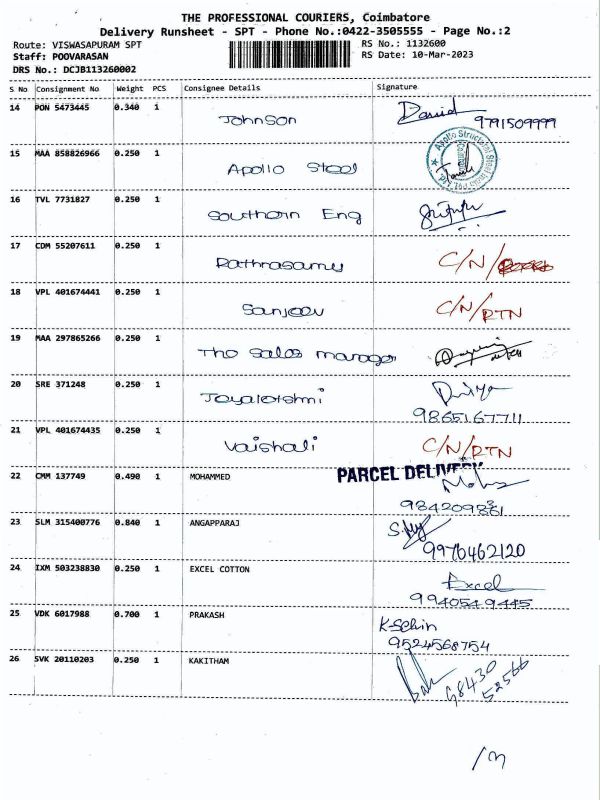 THE PROFESSIONAL COURIERS, Coimbatore
Delivery Runsheet - SPT - Phone No.:0422-3505555 - Page No.:2
Route: VISWASAPURAM SPT RS No.: 1132600
Staff: POOVARASAN RS Date: 10-Mar-2023
DRS No.: DCJB113260002
S No Consignment No Weight PCS Consignee Details Signature
14 PON 5473445 0.340 1 Johnson David
9791509999
15 MAA 858826966 0.250 1 Apollo Steel Apollo Structural Steel India Pvt Ltd
16 TVL 7731827 0.250 1 Southern Eng
17 CDM 55207611 0.250 1 Rathnasamy C/N/
18 VPL 401674441 0.250 1 Sanjeev C/N/RTN
19 MAA 297865266 0.250 1 The sales manager
20 SRE 371248 0.250 1 Jayalakshmi Divya
9865167711
21 VPL 401674435 0.250 1 Vaishali C/N/RTN
22 CMM 137749 0.490 1 MOHAMMED PARCEL DELIVERY
23 SLM 315400776 0.840 1 ANGAPPARAJ
9976462120
24 IXM 503238830 0.250 1 EXCEL COTTON Excel
9940549445
25 VDK 6017988 0.700 1 PRAKASH K-Schin
9524568754
26 SVK 20110203 0.250 1 KAKITHAM
98430
52566